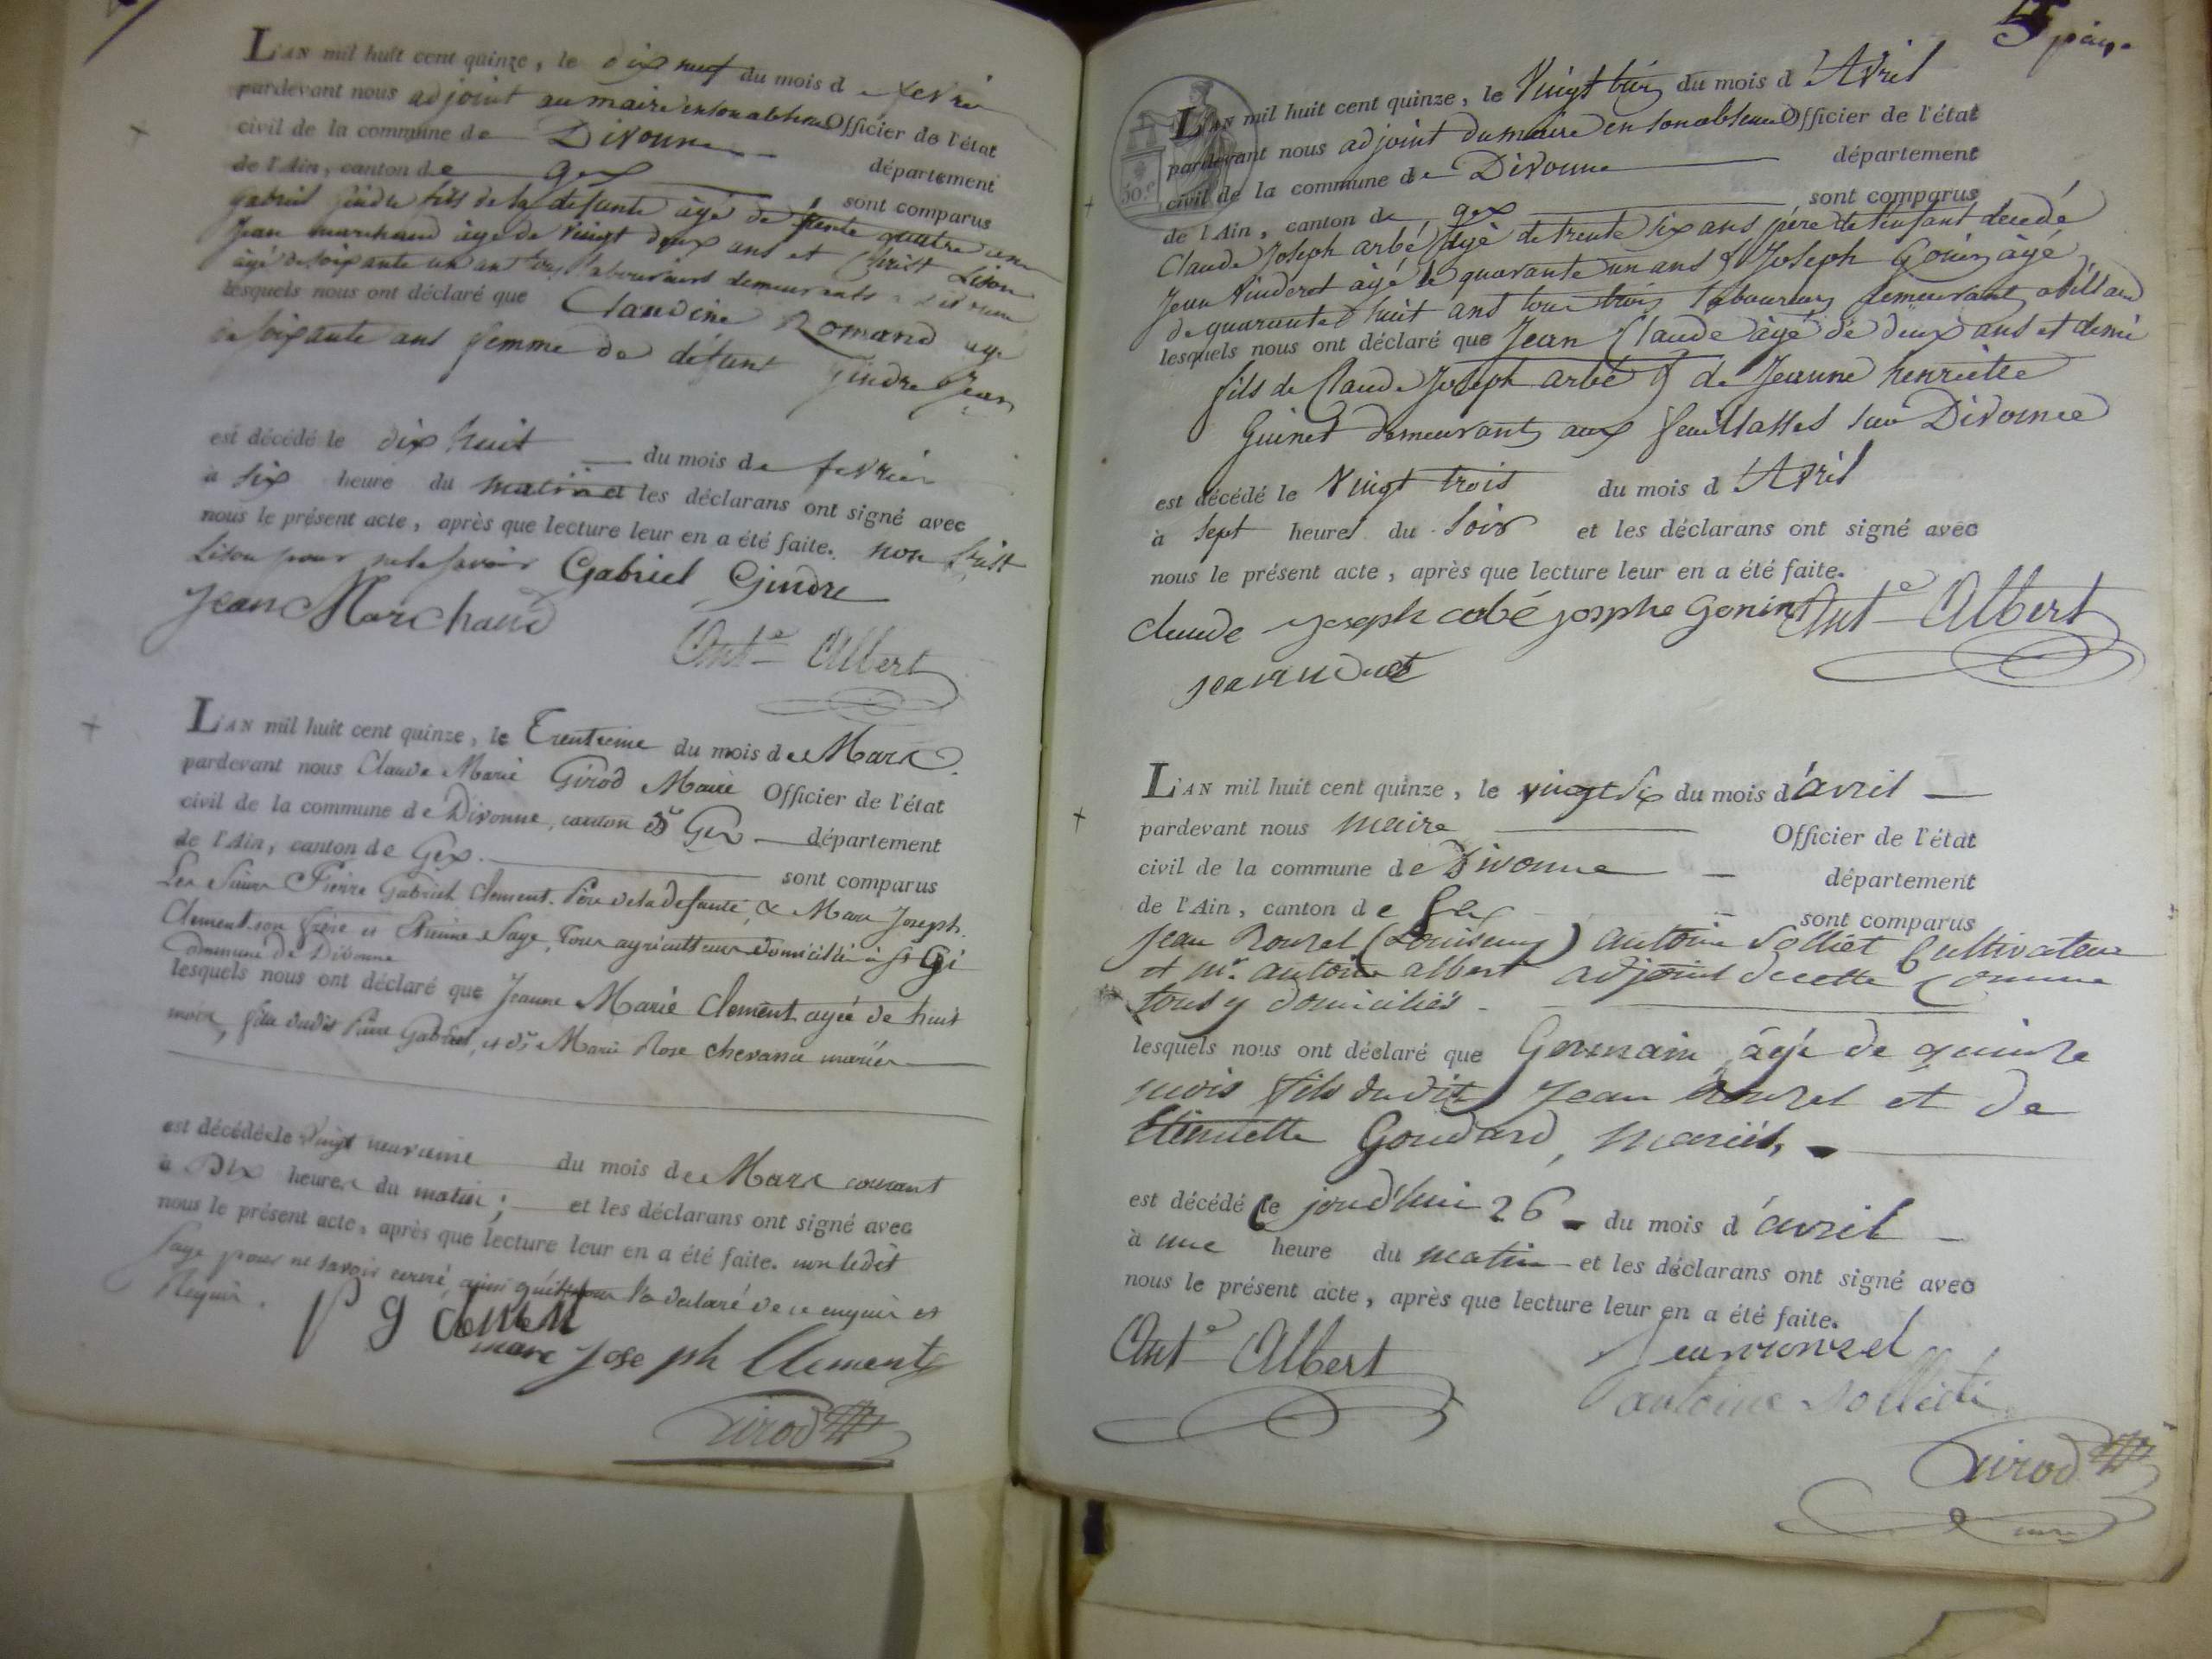 L'AN mil huit cent quinze, le dix neuf du mois de fevrier
pardevant nous adjoint au maire en son absence Officier de l'état
civil de la commune de Divonne département
de l'Ain, canton de gex sont comparus
gabriel gindre fils de la defunte âgé de trente quatre ans
Jean marchand âgé de vingt deux ans et Christ Lison
âgé de soixante un ans tous laboureurs demeurants a Divonne
lesquels nous ont déclaré que Claudine Romand agé
de soixante ans femme de défunt gindre Jean
est décédé le dix huit du mois de fevrier
à six heure du matin et les déclarans ont signé avec
nous le présent acte, après que lecture leur en a été faite. non Christ
Lison pour ne le savoir Gabriel Gindre
Jean Marchand
Ant.e Albert
L'AN mil huit cent quinze, le Trentieme du mois de Mars
pardevant nous Claude Marie Girod Maire Officier de l'état
civil de la commune de Divonne, canton de Gex département
de l'Ain, canton de Gex. sont comparus
Les Sieurs Pierre Gabriel Clement. Père de la defunte, & Marc Joseph
Clement son frère et Etienne Sage, Tous agriculteurs domiciliés à St Gi
Commune de Divonne
lesquels nous ont déclaré que Jeanne Marie Clement agée de huit
mois, fille dudit Pierre Gabriel, et de Marie Rose chevance mariés
est décédée le vingt neuvieme du mois de Mars courant
à Dix heures du matin; et les déclarans ont signé avec
nous le présent acte, après que lecture leur en a été faite. non ledit
Sage pour ne savoir écrire, ainsi qu'il l'a declaré de ce enquis et
Requis.
p g clement
marc Joseph Clement
Girod
5 page
L'AN mil huit cent quinze, le Vingt trois du mois d'Avril
pardevant nous adjoint du maire en son absence Officier de l'état
civil de la commune de Divonne département
de l'Ain, canton de gex sont comparus
Claude Joseph arbé âgé de trente six ans père de l'enfant decedé
Jean Vinderet âgé de quarante un ans & Joseph Gonin âgé
de quarante huit ans tous trois laboureurs demeurant a Villard
lesquels nous ont déclaré que Jean Claude âgé de deux ans et demi
fils de Claude Joseph arbé & de Jeanne henriette
Guinet demeurants aux feuillasses sur Divonne
est décédé le Vingt trois du mois d'Avril
à sept heures du soir et les déclarans ont signé avec
nous le présent acte, après que lecture leur en a été faite.
claude joseph arbé josphe Gonin Ant.e Albert
L'AN mil huit cent quinze, le vingt six du mois d'avril
pardevant nous maire Officier de l'état
civil de la commune de Divonne département
de l'Ain, canton de Gex sont comparus
Jean Rouzel (Louiseux) antoine Solliet Cultivateur
et Mr. antoine albert adjoint de cette Comune
tous y domiciliés
lesquels nous ont déclaré que Germain, âgé de quinze
mois fils dudit Jean Rouzel et de
Etiennette Goudard, mariés,
est décédé le jourd'hui 26 du mois d'avril
à une heure du matin et les déclarans ont signé avec
nous le présent acte, après que lecture leur en a été faite.
Ant.e Albert Jean rouzel
antoine Solliet
Girod